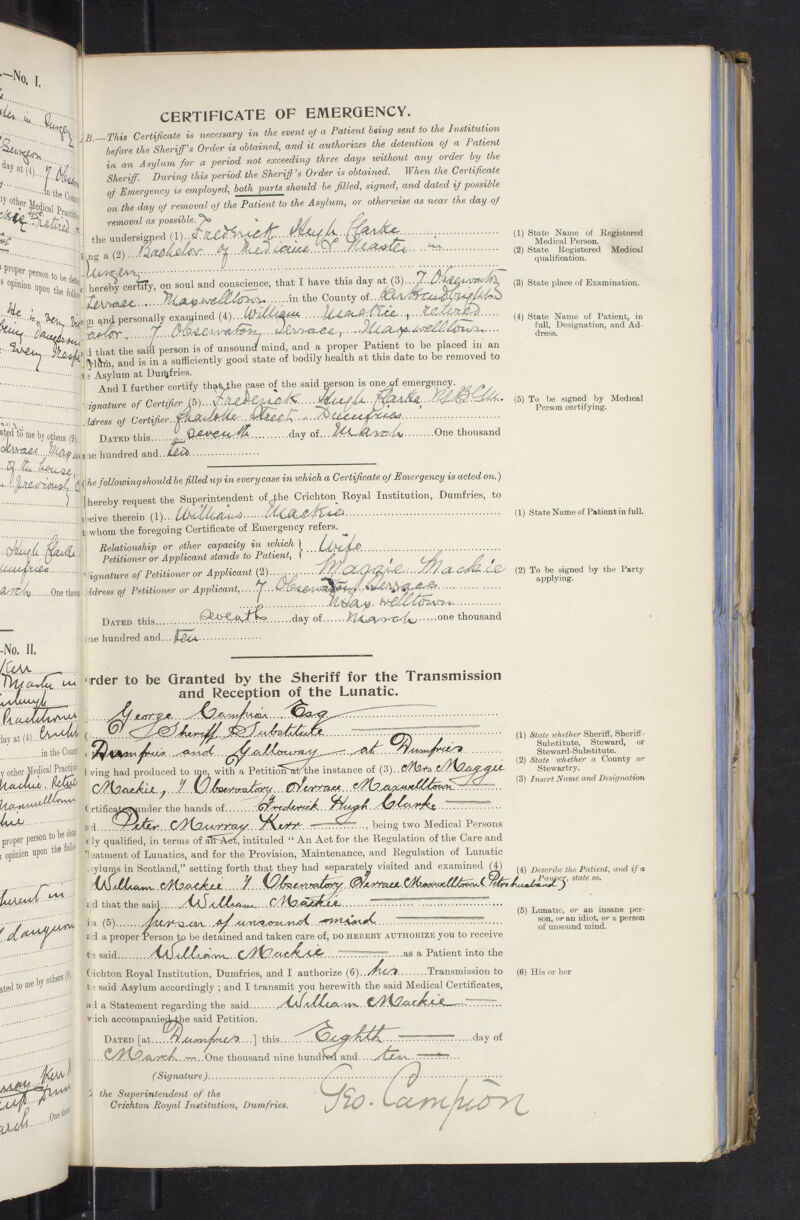 —No. I.
CERTIFICATE OF EMERGENCY.
B.—This Certificate is necessary in the event of a Patient being sent to the Institution
before the Sheriff's Order is obtained, and it authorizes the detention of a Patient
in an Asylum for a period not exceeding three days without any order by the
Sheriff. During this period the Sheriff's Order is obtained. When the Certificate
of Emergency is employed, both parts should be filled, signed, and dated if possible
on the day of removal of the Patient to the Asylum, or otherwise as near the day of
removal as possible.
the undersigned (1) Frederick Hugh Clarke
ng a (2) Bachelor of Medicine & Master in
Surgery
hereby certify, on soul and conscience, that I have this day at (3) 7 Observatory
Terrace, Maxwelltown in the County of Kirkcudbright
n and personally examined (4) William Mackie, retired
7 Observatory Terrace, Maxwelltown
d that the said person is of unsound mind, and a proper Patient to be placed in an
ylum, and is in a sufficiently good state of bodily health at this date to be removed to
e Asylum at Dumfries.
And I further certify that the case of the said person is one of emergency.
ignature of Certifier (5) Frederick Hugh Clarke M.B.C.M.
ddress of Certifier Charlotte Street Dumfries
DATED this seventh day of March One thousand
ne hundred and ten
he following should be filled up in every case in which a Certificate of Emergency is acted on.)
hereby request the Superintendent of the Crichton Royal Institution, Dumfries, to
eive therein (1) William Mackie
whom the foregoing Certificate of Emergency refers.
Relationship or other capacity in which
Petitioner or Applicant stands to Patient, } Wife
ignature of Petitioner or Applicant (2) Maggie Mackie
ddress of Petitioner or Applicant, 7 Observatory Terrace
Maxwelltown
DATED this seventh day of March one thousand
ne hundred and ten
rder to be Granted by the Sheriff for the Transmission
and Reception of the Lunatic.
George Campion Esq
Sheriff Substitute
Dumfries and Galloway at Dumfries
ving had produced to me, with a Petition at the instance of (3) Mrs Maggie
Mackie, 7 Observatory Terrace Maxwelltown
rtificates under the hands of Frederick Hugh Clarke
d Peter Murray Kerr, being two Medical Persons
ly qualified, in terms of an Act, intituled "An Act for the Regulation of the Care and
eatment of Lunatics, and for the Provision, Maintenance, and Regulation of Lunatic
ylums in Scotland," setting forth that they had separately visited and examined (4)
William Mackie 7 Observatory Terrace Maxwelltown Petrs husband
d that the said William Mackie
is (5) person of unsound mind
d a proper Person to be detained and taken care of, DO HEREBY AUTHORIZE you to receive
said William Mackie as a Patient into the
richton Royal Institution, Dumfries, and I authorize (6) his Transmission to
said Asylum accordingly; and I transmit you herewith the said Medical Certificates,
d a Statement regarding the said William Mackie
ich accompanied the said Petition.
DATED [at Dumfries] this Eighth day of
March One thousand nine hundred and ten
(Signature) Geo. Campion
the Superintendent of the
Crichton Royal Institution, Dumfries.
(1) State Name of Registered
Medical Person.
(2) State Registered Medical
qualification.
(3) State place of Examination.
(4) State Name of Patient, in
full, Designation, and Ad-
dress.
(5) To be signed by Medical
Person certifying.
(1) State Name of Patient in full.
(2) To be signed by the Party
applying.
(1) State whether Sheriff, Sheriff-
Substitute, Steward, or
Steward-Substitute.
(2) State whether a County or
Stewartry.
(3) Insert Name and Designation
(4) Describe the Patient, and if a
Pauper, state so.
(5) Lunatic, or an insane per-
son, or an idiot, or a person
of unsound mind.
(6) His or her
-No. II.